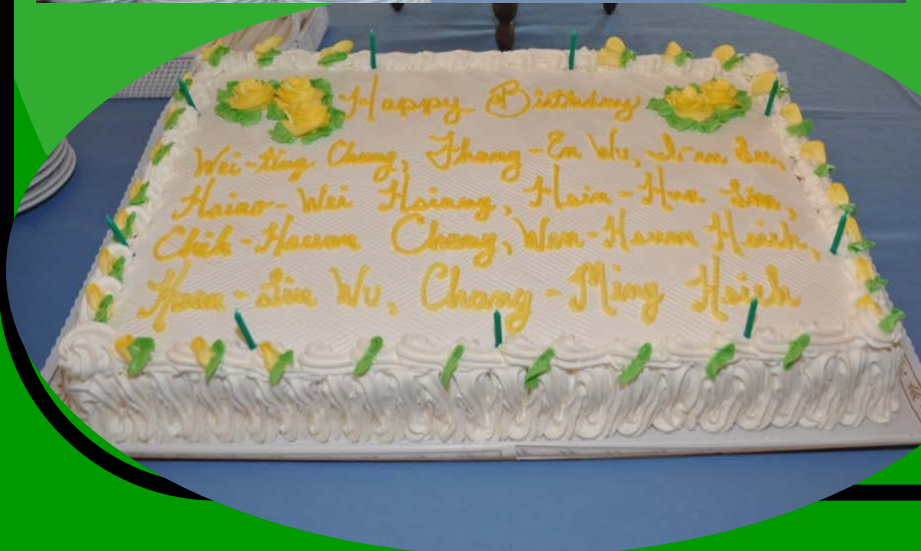 Happy Birthday
Wei-ting Chang, Zhang-En Wu,
Hsiao-Wei Hsiang, Hsin-Hua Lin,
Chih-Hsuan Chang, Wen-Hsuan Hsieh,
Wu, Chang-Ming Hsieh